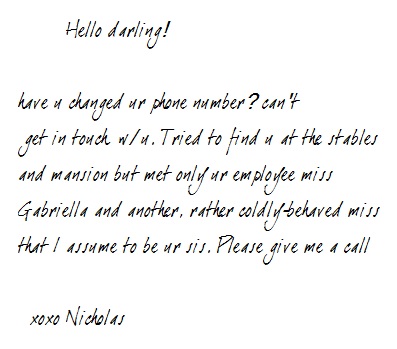 Hello darling!
have u changed ur phone number? can't
get in touch w/u. Tried to find u at the stables
and mansion but met only ur employee miss
Gabriella and another, rather coldly-behaved miss
that I assume to be ur sis. Please give me a call
xoxo Nicholas